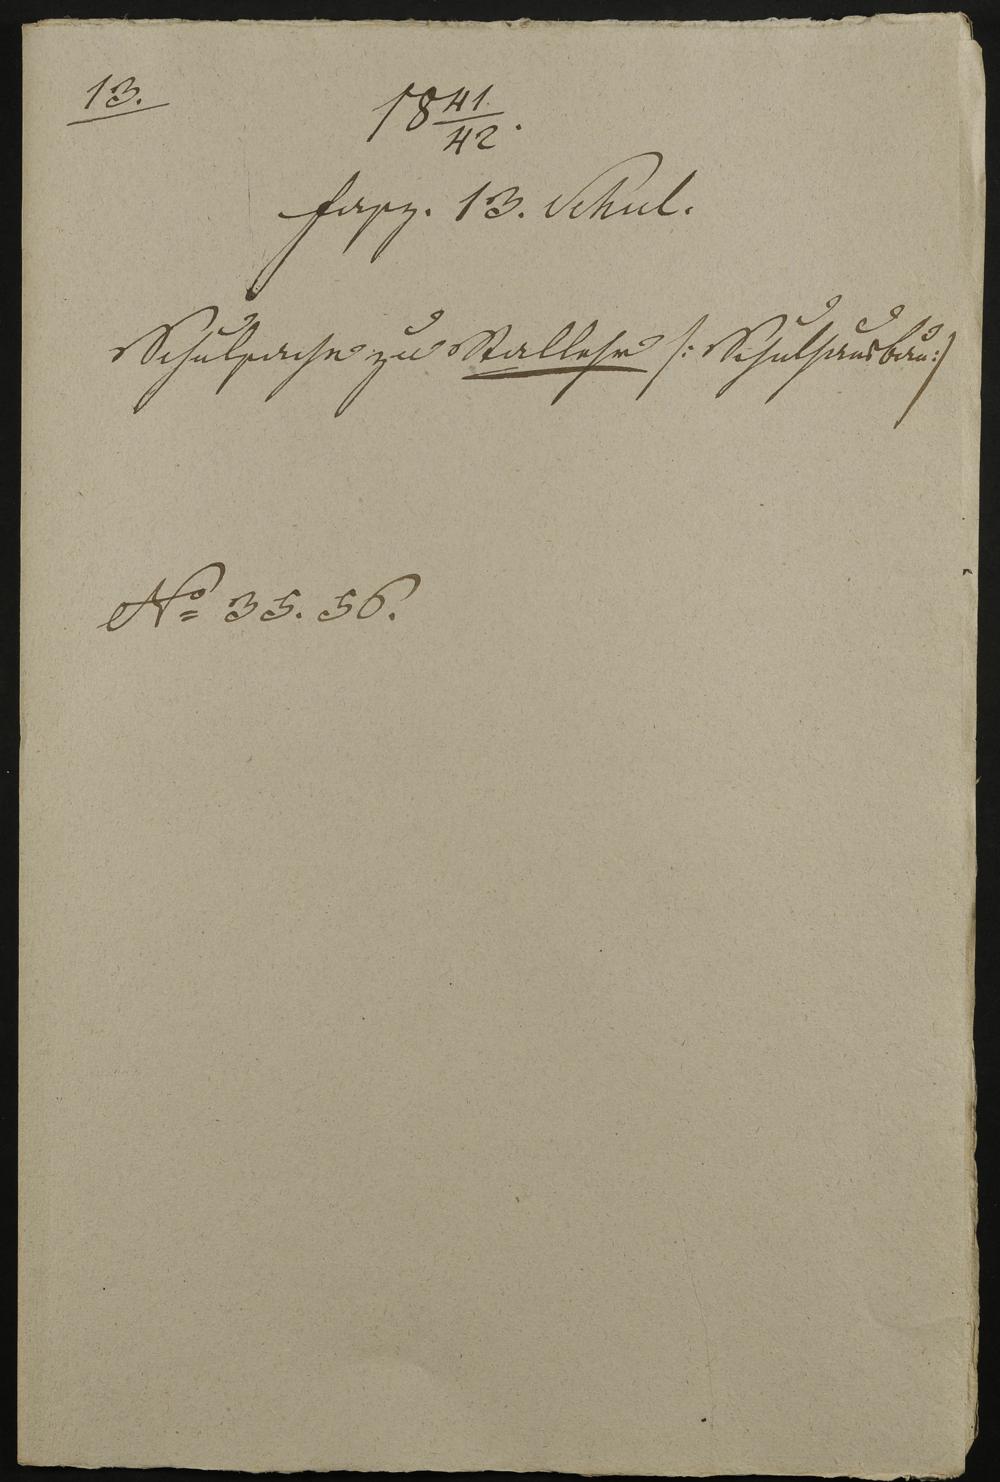 13.
18 41/42.
Fasz. 13. Schul.
Schulsache zu Stallehr /: Schulhausbau :/
No 35. 56.